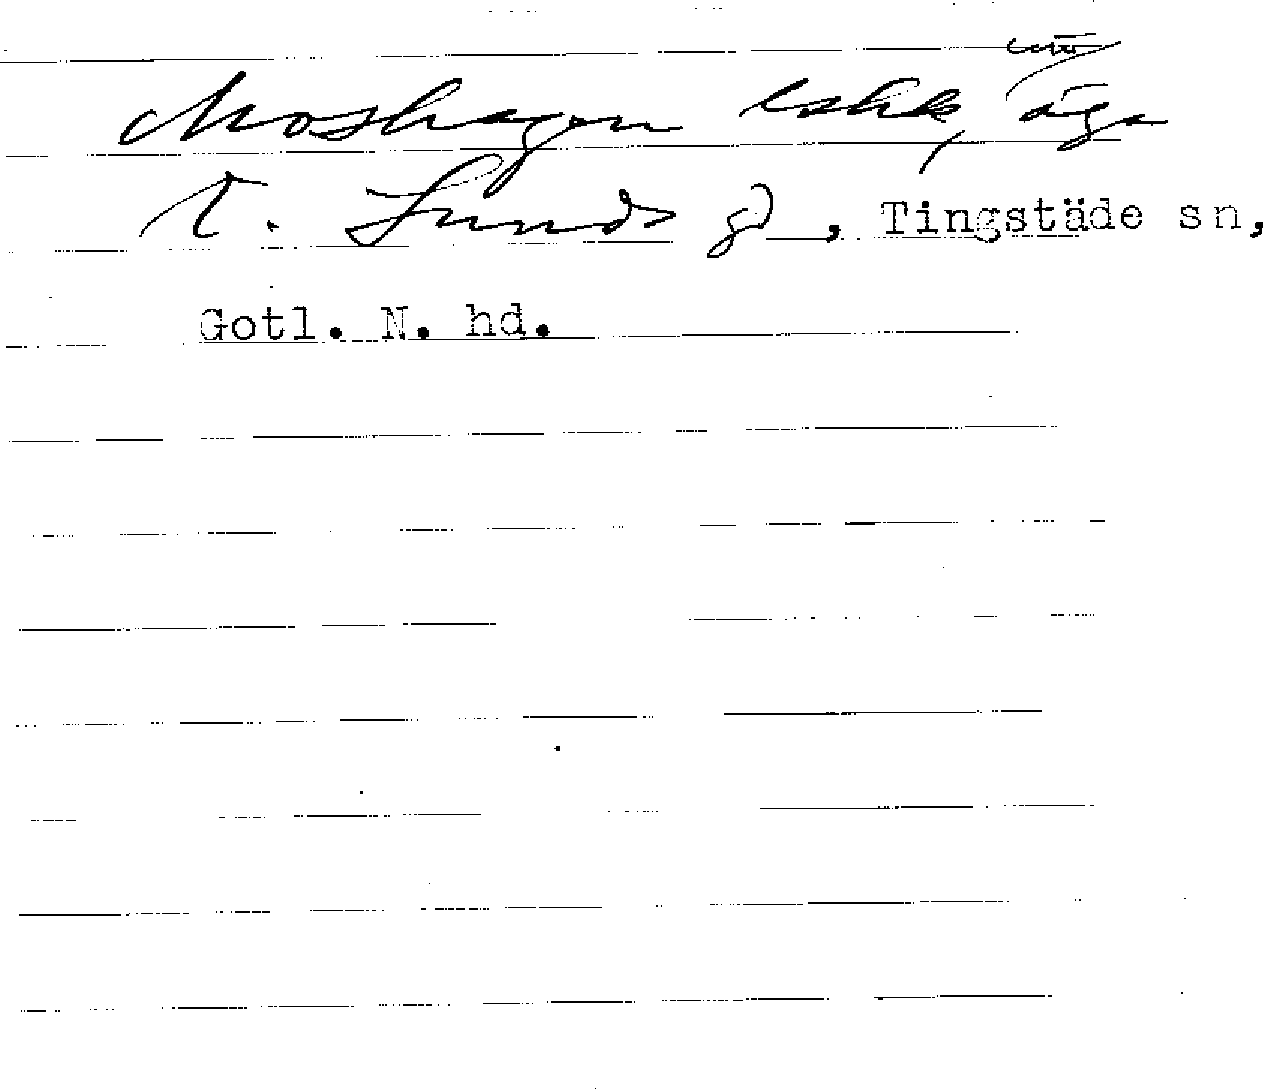 Moshagen eshk, äga
t. Lunds gd, Tingstäde sn,
Gotl. N. hd.